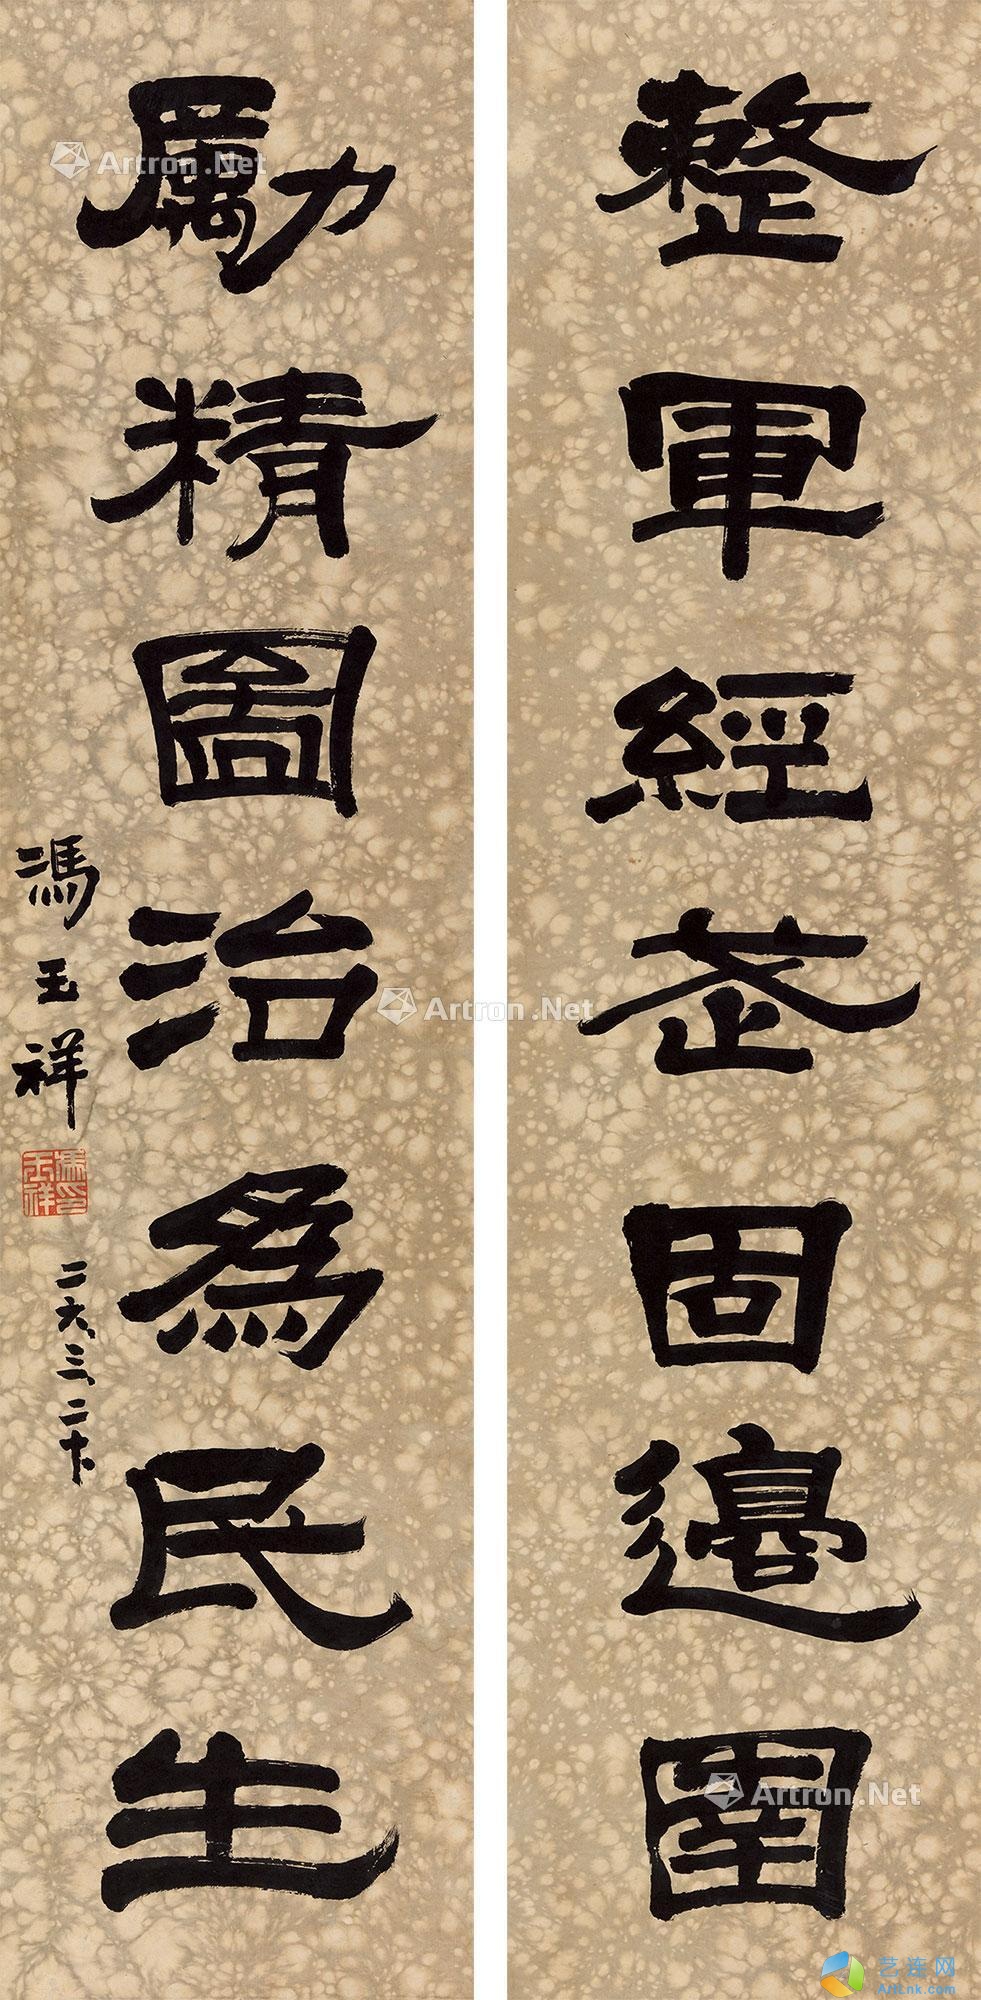 整軍經武固邊圉
勵精圖治為民生
馮玉祥
馮玉祥印
二六、三、二十
Artron.Net
Artron.Net
Artron.Net
艺连网
ArtLnk.com